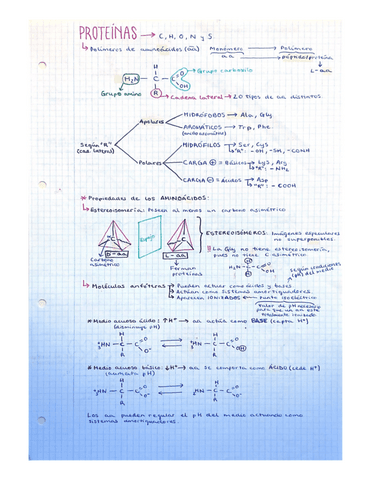 PROTEÍNAS → C, H, O, N y S
↳ Polímeros de aminoácidos (aa) Monómero → Polímero
aa → péptido/proteína
L-aa
H
H₂N - C - C O OH → Grupo carboxilo
Grupo amino R → Cadena lateral → 20 tipos de aa distintos
Según "R" (cad. lateral)
Apolares
HIDRÓFOBOS → Ala, Gly
AROMÁTICOS → Trp, Phe
Polares
HIDRÓFILOS → Ser, Cys
↳ "R": -OH, -SH, -CONH
CARGA ⊕ = Básicos → Lys, Arg
↳ "R": -NH₂
CARGA ⊖ = Ácidos → Asp
↳ "R": -COOH
* Propiedades de los AMINOÁCIDOS:
↳ Estereoisomería: Poseen al menos un carbono asimétrico
ESTEREOISÓMEROS: Imágenes especulares
no superponibles
D-aa L-aa
Carbono
asimétrico
Forman
proteínas
!! La Gly no tiene estereoisomería,
pues no tiene C asimétrico
↳ Moléculas anfóteras
→ Pueden actuar como ácidos y bases
→ Actúan como sistemas amortiguadores
→ Aparecen IONIZADOS ← Punto isoeléctrico
Según condiciones
(pH) del medio
Valor de pH necesario
para que un aa esté
totalmente ionizado
* Medio acuoso ácido: ↑H⁺ → aa actúa como BASE (capta H⁺)
(disminuye pH)
H
⁺₃HN - C - C O O⁻ ⇌ ⁺₃HN - C - C O OH
R R
* Medio acuoso básico: ↓H⁺ → aa se comporta como ÁCIDO (cede H⁺)
(aumenta pH)
Los aa pueden regular el pH del medio actuando como
sistemas amortiguadores.